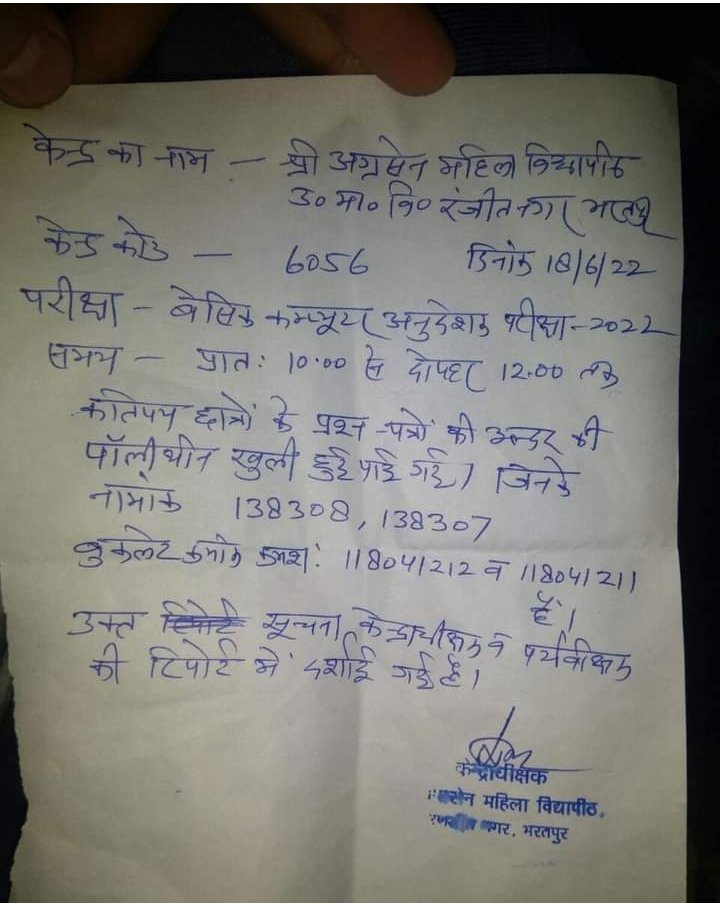 केन्द्र का नाम - श्री अग्रसेन महिला विद्यापीठ
उ० मा० वि० रंजीत नगर भरतपुर
केन्द्र कोड - 6056 दिनांक 18/6/22
परीक्षा - बेसिक कम्प्यूटर अनुदेशक परीक्षा-2022
समय - प्रात: 10.00 से दोपहर 12.00 तक
कतिपय छात्रों के प्रश्न-पत्रों की अन्दर की
पॉलीथीन खुली हुई पाई गई। जिनके
नामांक 138308, 138307
बुकलेट क्रमांक क्रमश: 118041212 व 118041211
हैं।
उक्त सूचना केन्द्राधीक्षक व पर्यवीक्षक
की रिपोर्ट में दर्शाई गई है।
केन्द्राधीक्षक
महिला विद्यापीठ,
नगर, भरतपुर